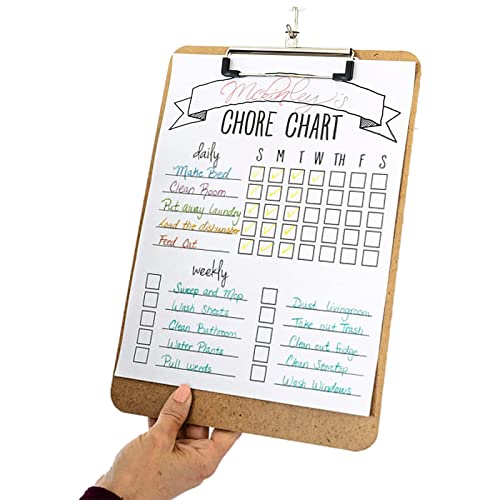 McKinley's
CHORE CHART
daily S M T W TH F S
Make Bed
Clean Room
Put away laundry
Load the dishwasher
Feed Cat
weekly
Sweep and Mop
Wash Sheets
Clean Bathroom
Water Plants
Pull weeds
Dust Livingroom
Take out Trash
Clean out fridge
Clean Stovetop
Wash Windows